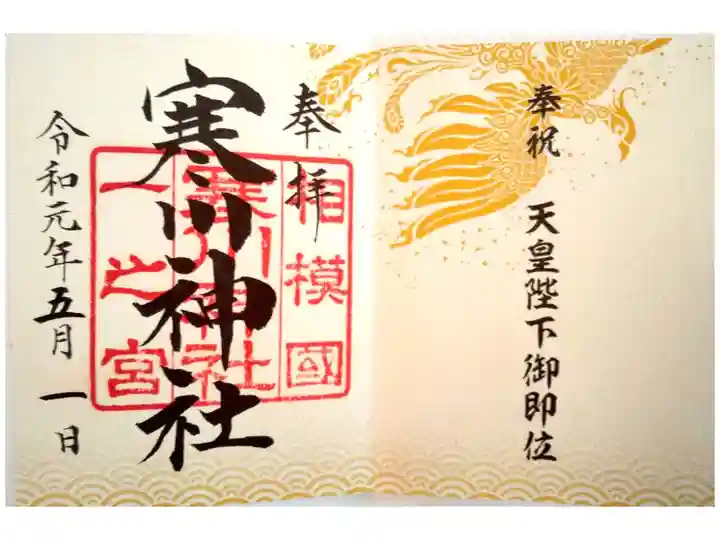 奉祝 天皇陛下御即位
奉拝
相模國
寒川神社
寒川神社
一之宮
令和元年五月一日